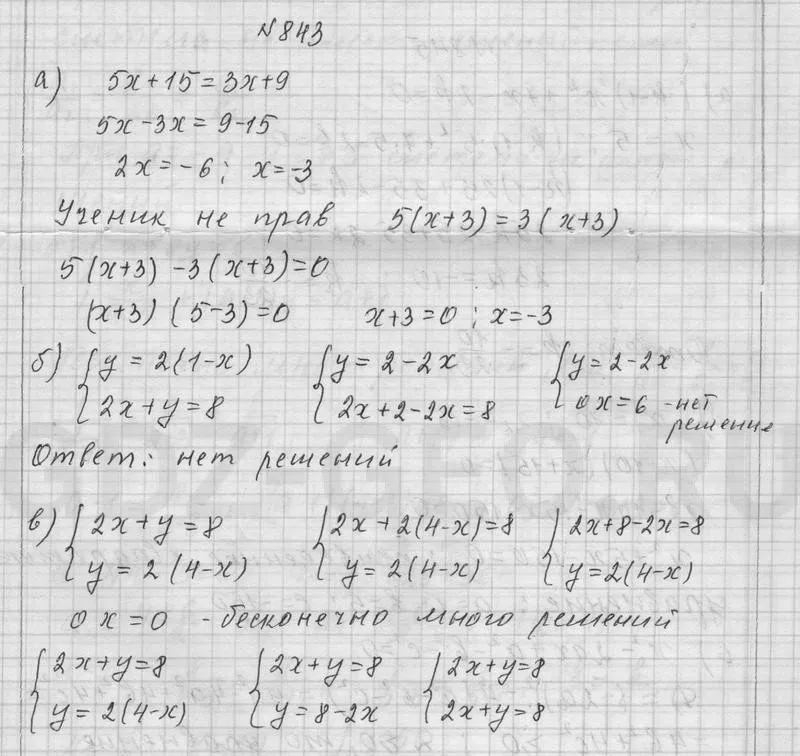 №843
а) 5x+15=3x+9
5x-3x=9-15
2x=-6; x=-3
Ученик не прав 5(x+3)=3(x+3)
5(x+3)-3(x+3)=0
(x+3)(5-3)=0 x+3=0; x=-3
б) {y=2(1-x) {y=2-2x {y=2-2x
{2x+y=8 {2x+2-2x=8 {0x=6 -нет
решение
Ответ: нет решений
в) {2x+y=8 {2x+2(4-x)=8 {2x+8-2x=8
{y=2(4-x) {y=2(4-x) {y=2(4-x)
0x=0 -бесконечно много решений
{2x+y=8 {2x+y=8 {2x+y=8
{y=2(4-x) {y=8-2x {2x+y=8